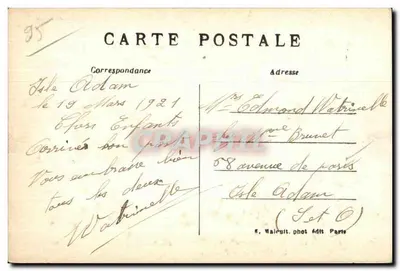 95
CARTE POSTALE
Correspondance
Adresse
Isle Adam
le 19 Mars 1921
Chers Enfants
Arrivés bon port
Vous embrasse bien
tous les deux
Watrinelle
Mr Edmond Watrinelle
Brunet
58 avenue de paris
Isle Adam
(S et O)
phot édit Paris